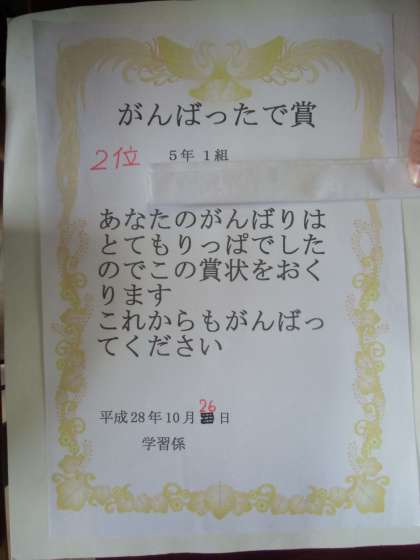 がんばったで賞
2位 5年1組
あなたのがんばりは
とてもりっぱでした
のでこの賞状をおく
ります
これからもがんばっ
てください
平成28年10月26日
学習係